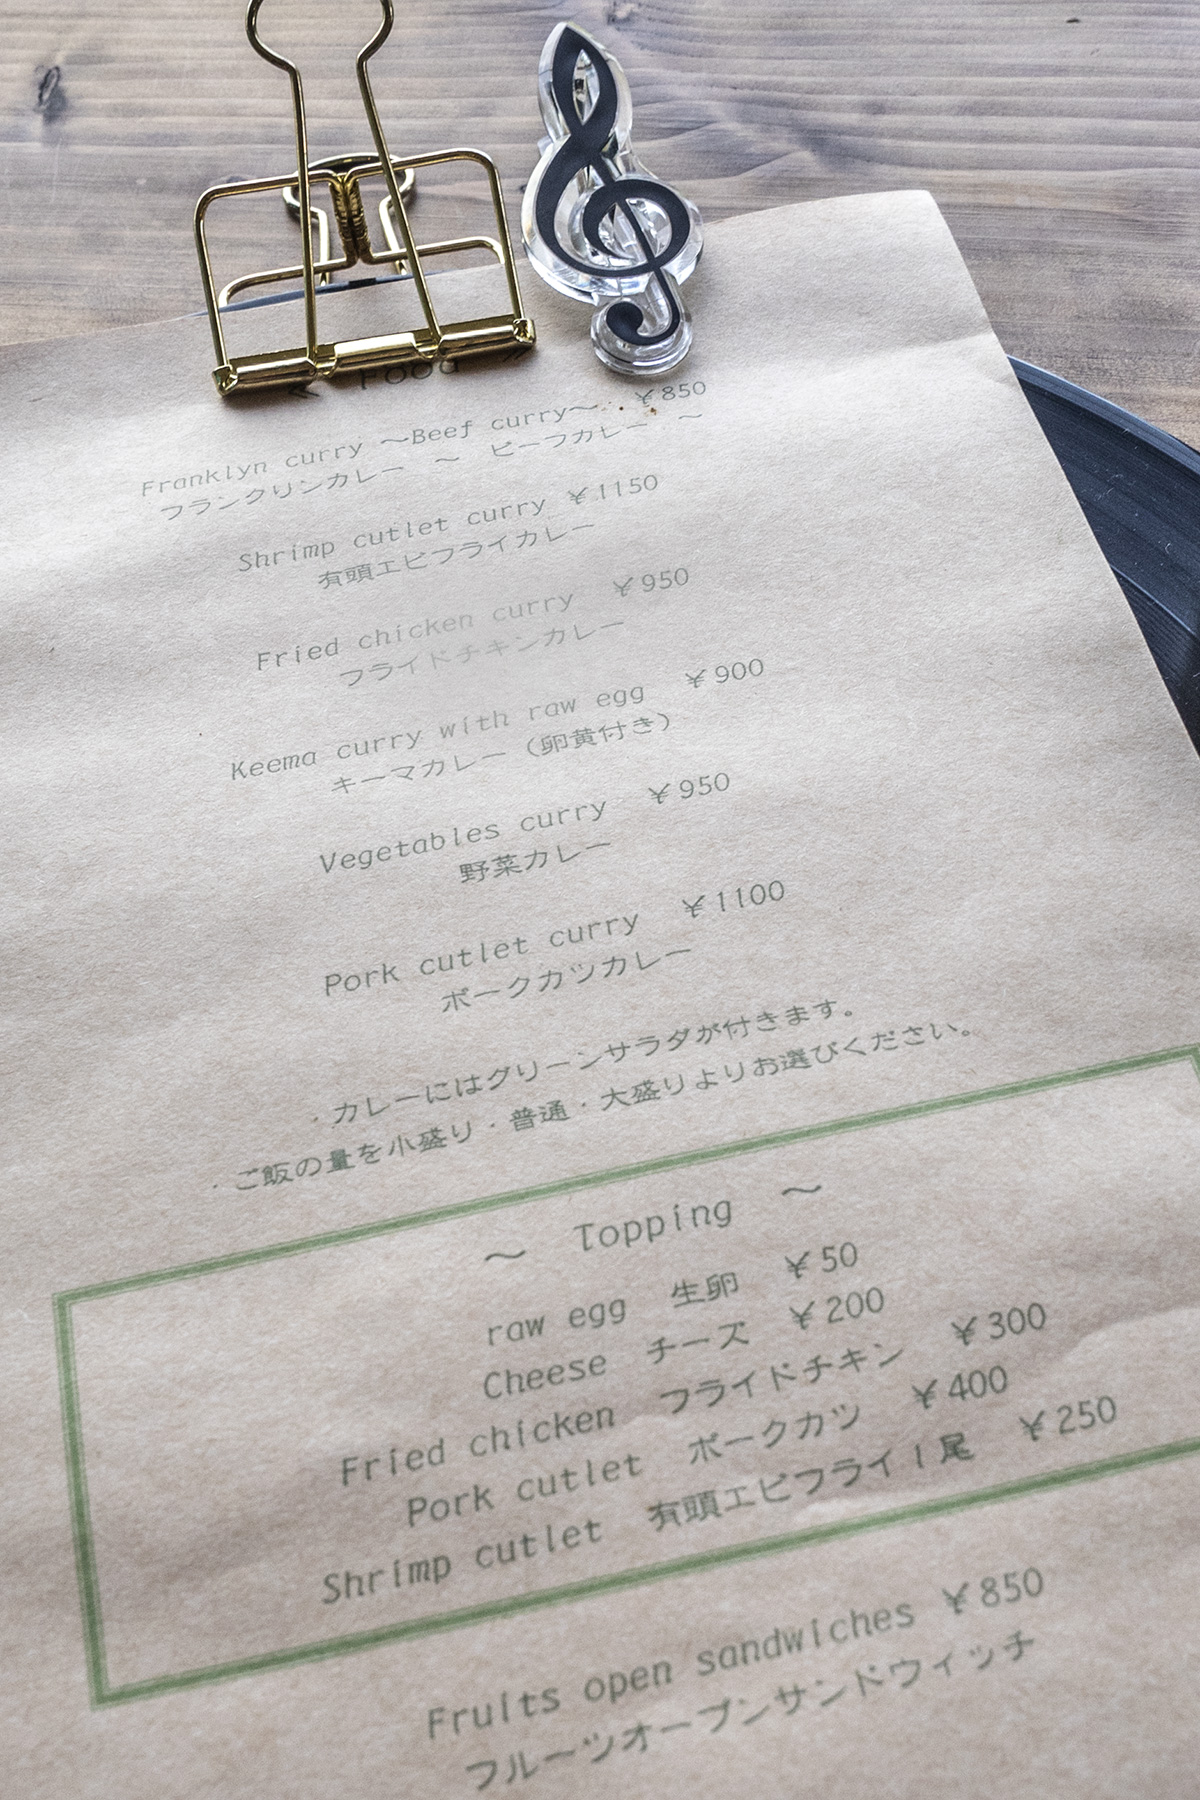 « Food »
Franklyn curry ～Beef curry～ ¥850
フランクリンカレー ～ ビーフカレー ～
Shrimp cutlet curry ¥1150
有頭エビフライカレー
Fried chicken curry ¥950
フライドチキンカレー
Keema curry with raw egg ¥900
キーマカレー（卵黄付き）
Vegetables curry ¥950
野菜カレー
Pork cutlet curry ¥1100
ポークカツカレー
・カレーにはグリーンサラダが付きます。
・ご飯の量を小盛り・普通・大盛りよりお選びください。
～ Topping ～
raw egg 生卵 ¥50
Cheese チーズ ¥200
Fried chicken フライドチキン ¥300
Pork cutlet ポークカツ ¥400
Shrimp cutlet 有頭エビフライ1尾 ¥250
Fruits open sandwiches ¥850
フルーツオープンサンドウィッチ